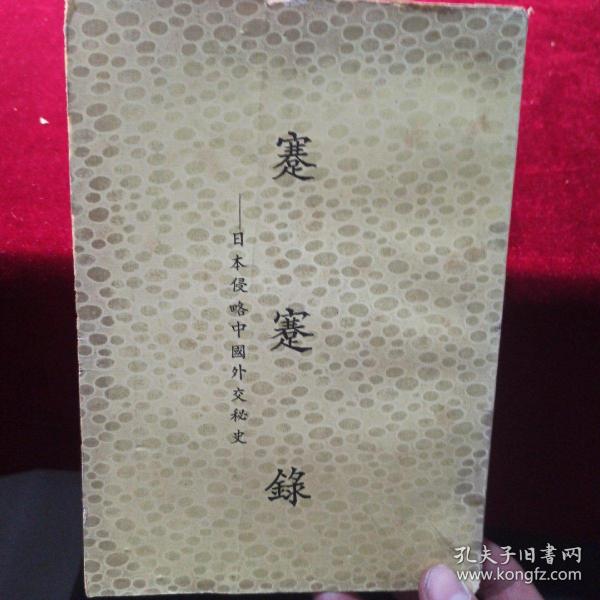 蹇蹇錄
——日本侵略中國外交秘史
孔夫子旧書网
www.kongfz.com